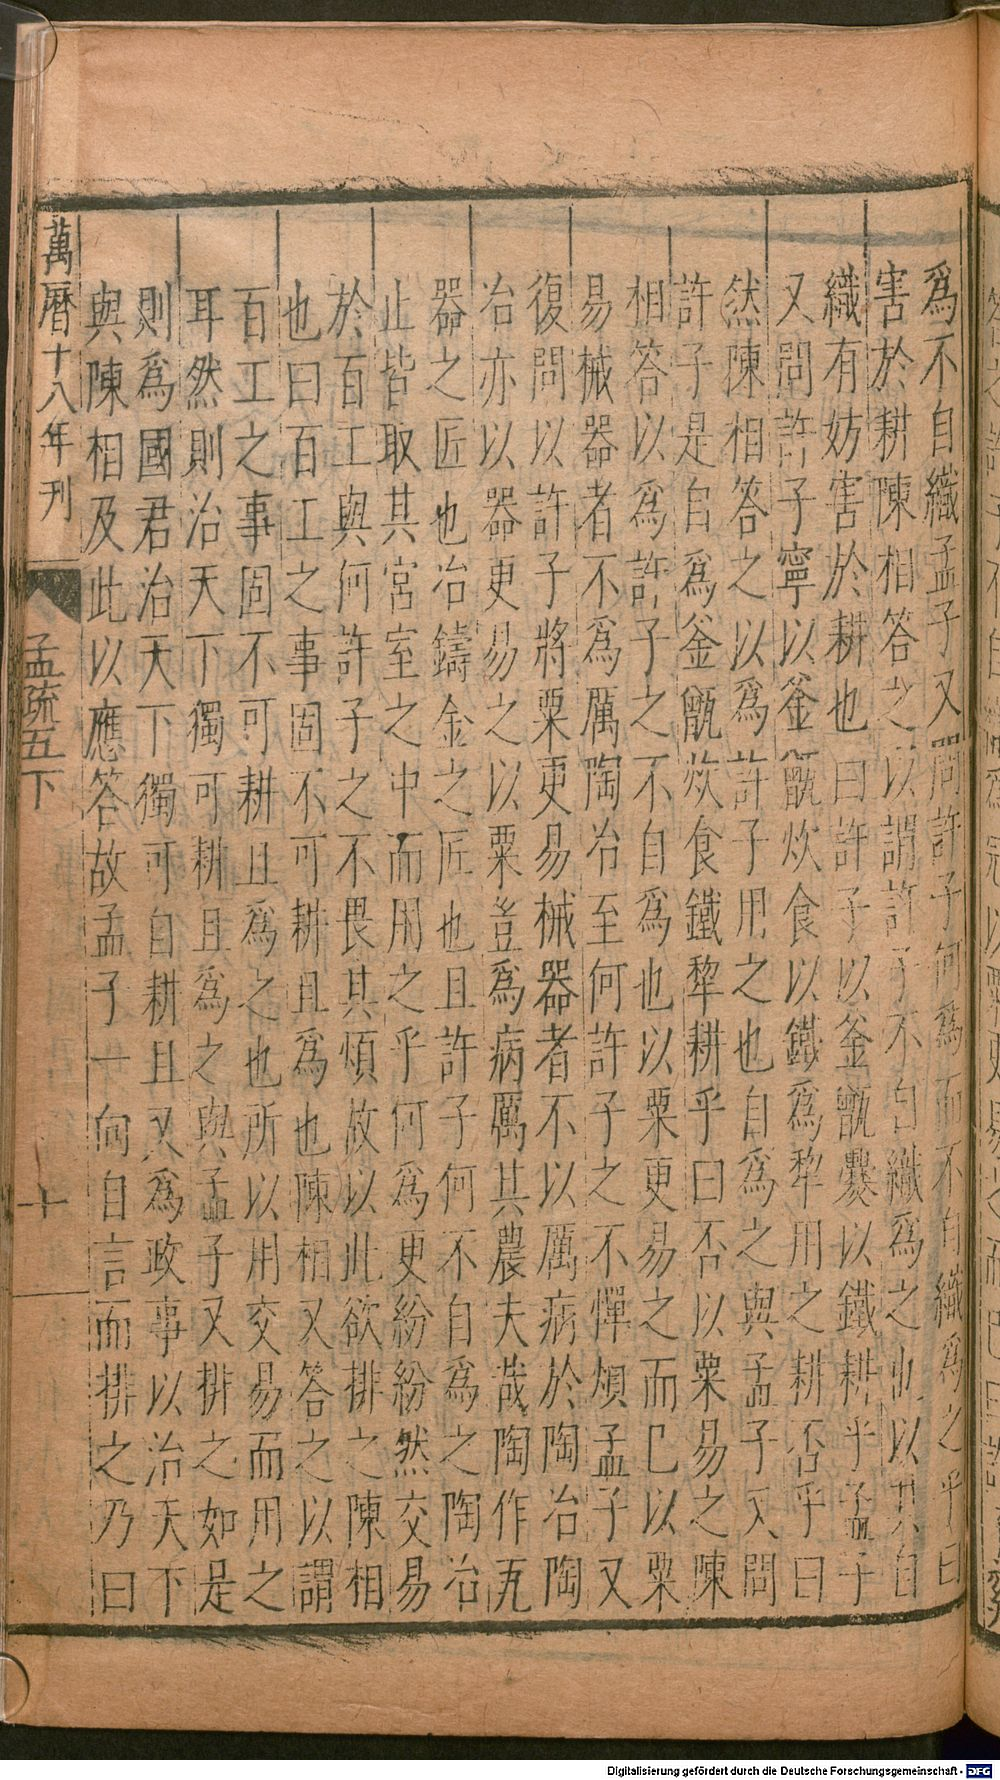 為不自織孟子又問許子何為而不自織為之乎曰
害於耕陳相答之以謂許子不自織為之也以其自
織有妨害於耕也曰許子以釜甑爨以鐵耕乎孟子
又問許子寧以釜甑炊食以鐵為犂用之耕否乎曰
然陳相答之以為許子用之也自為之與孟子又問
許子是自為釜甑炊食鐵犂耕乎曰否以粟易之陳
相答以為許子之不自為也以粟更易之而已以粟
易械器者不為厲陶冶至何許子之不憚煩孟子又
復問以許子將粟更易械器者不以厲病於陶冶陶
冶亦以器更易之以粟豈為病厲其農夫哉陶作瓦
器之匠也冶鑄金之匠也且許子何不自為之陶冶
止皆取其宮室之中而用之乎何為更紛紛然交易
於百工與何許子之不畏其煩故以此欲排之陳相
也曰百工之事固不可耕且為也陳相又答之以謂
百工之事固不可耕且為之也所以用交易而用之
耳然則治天下獨可耕且為之與孟子又排之如是
則為國君治天下獨可自耕且又為政事以治天下
與陳相及此以應答故孟子一向自言而排之乃曰
萬曆十八年刊
孟疏五下
十
Digitalisierung gefördert durch die Deutsche Forschungsgemeinschaft - DFG